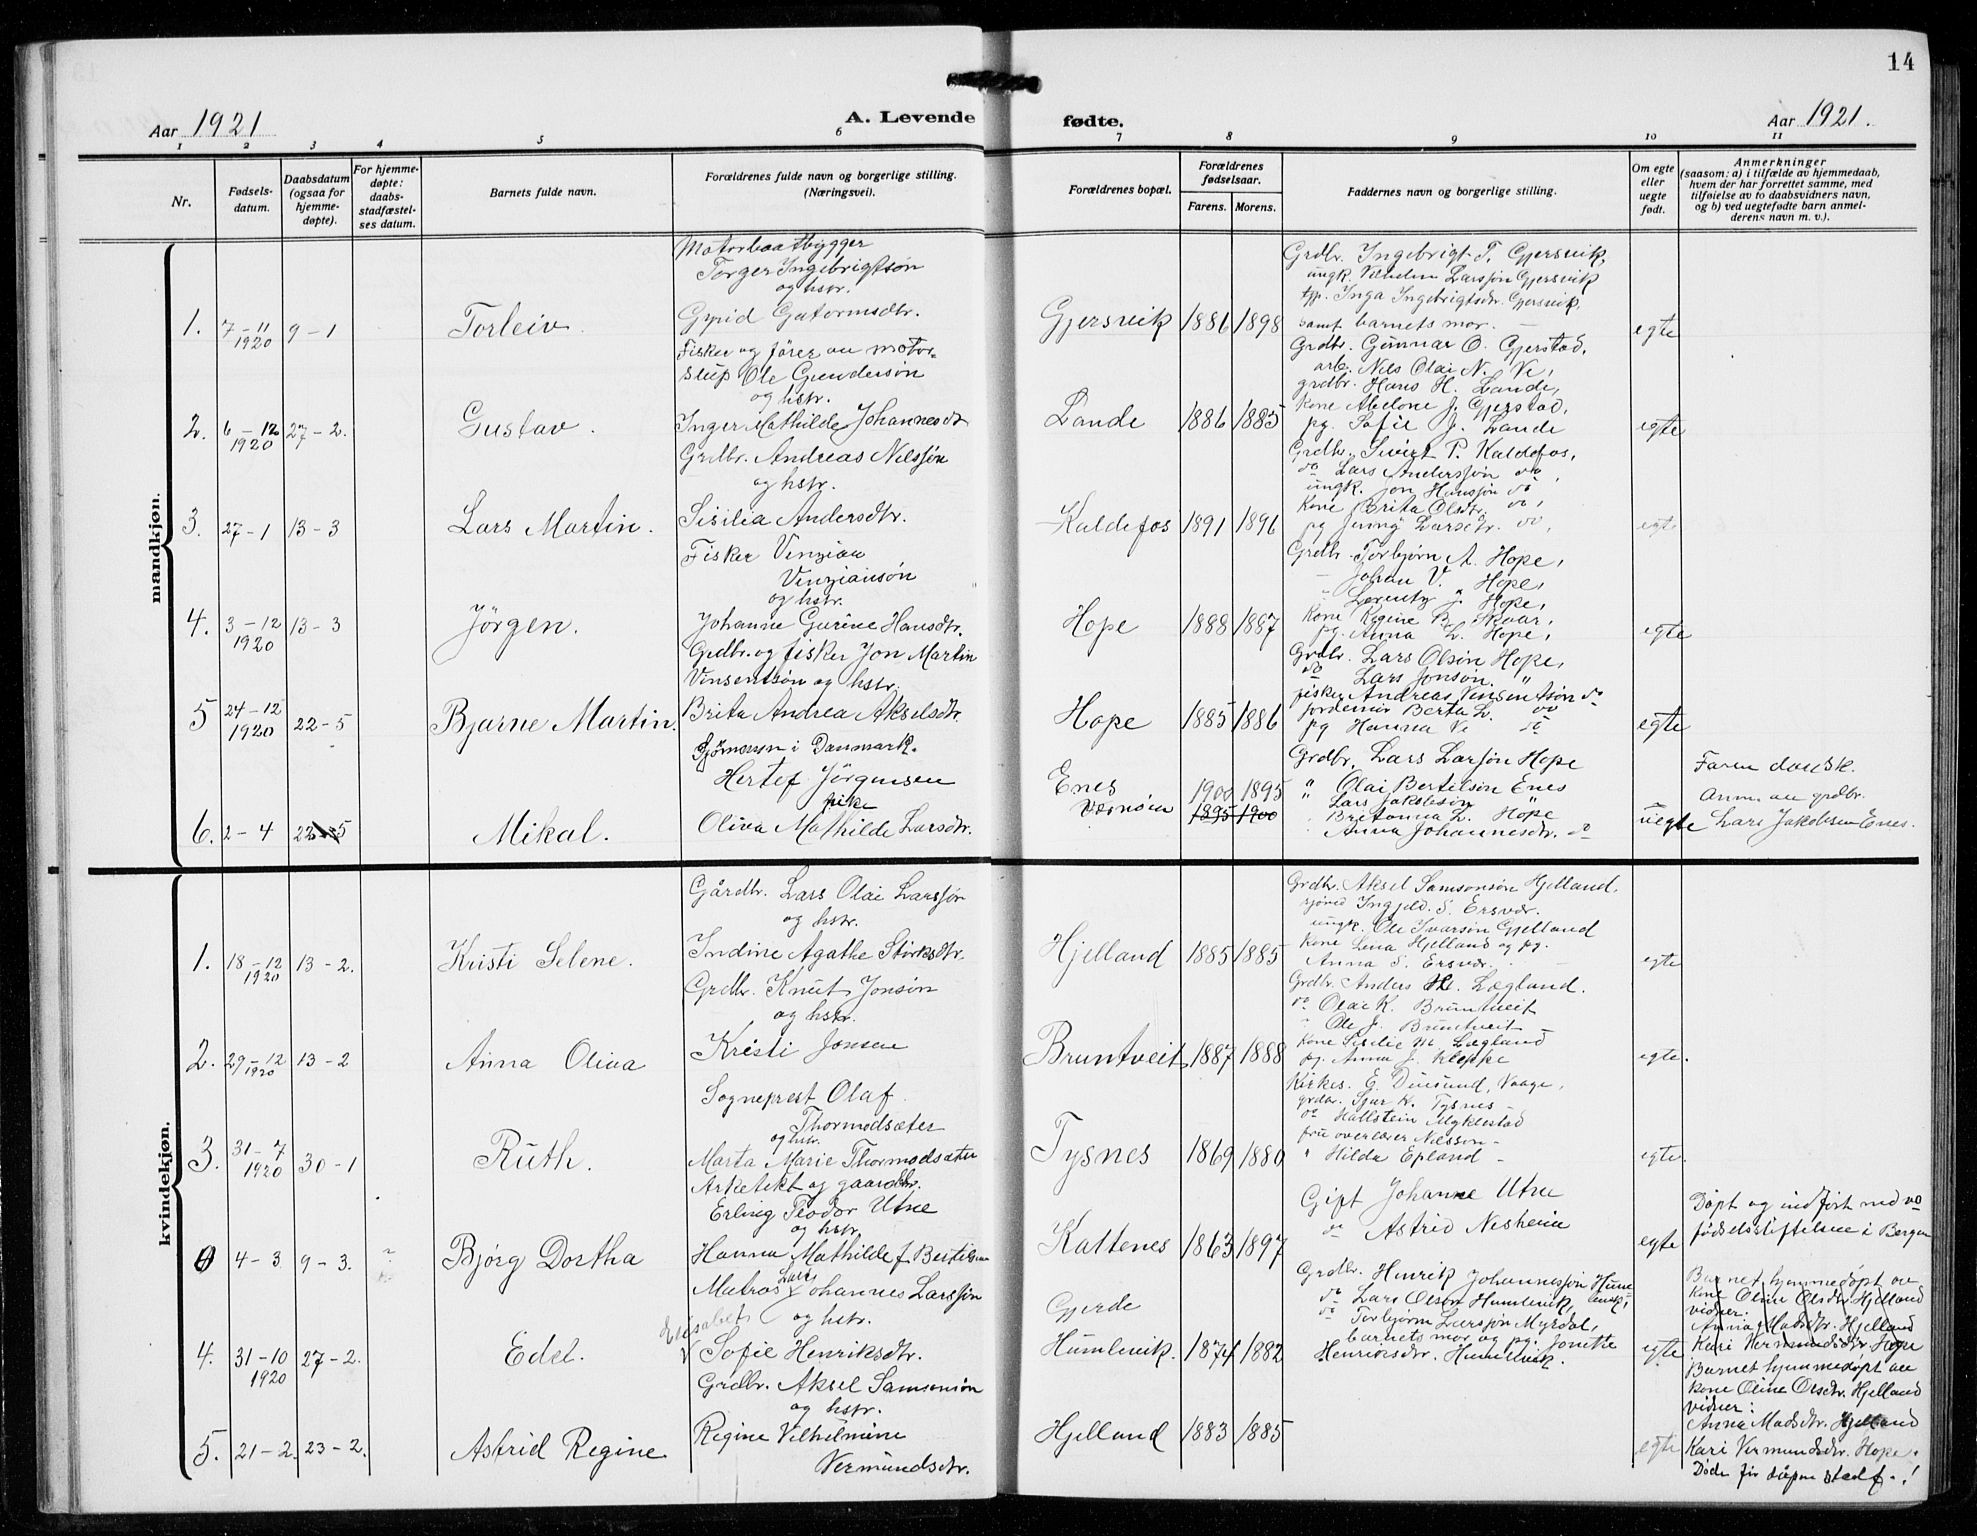 14
Aar 1921
A. Levende
fødte.
Aar 1921.
1 2 3 4 5 6 7 8 9 10 11
Nr.
Fødsels-
datum.
Daabsdatum
(ogsaa for
hjemme-
døpte).
For hjemme-
døpte:
daabs-
stadfæstel-
ses datum.
Barnets fulde navn.
Forældrenes fulde navn og borgerlige stilling.
(Næringsvei).
Forældrenes bopæl.
Forældrenes
fødselsaar.
Farens. Morens.
Faddernes navn og borgerlige stilling.
Om egte
eller
uegte
født.
Anmerkninger
(saasom: a) i tilfælde av hjemmedaab,
hvem der har forrettet samme, med
tilføielse av to daabsvidners navn,
og b) ved uegtefødte barn anmel-
derens navn m. v.).
mandkjøn.
1. 7-11 1920 9-1
Torleiv.
Motorbaatbygger
Torger Ingebrigtsøn
og hstr.
Gyrid Gutormsdtr.
Gjersvik 1886 1898
Grdbr. Ingebrigt T. Gjersvik,
ungk. Vilhelm Larssøn Gjersvik
Inga Ingebrigtsdr. Gjersvik,
samt barnets mor.
egte
2. 6-12 1920 27-2.
Gustav.
Fisker og fører av motor-
slup Ole Gundersøn
og hstr.
Inger Mathilde Johannesdt
Lande 1886 1885
Grdbr. Gunnar O. Gjerstad,
arb. Nils Olai N. Ve,
grdbr. Hans H. Lande,
Kone Abelone J. Gjerstad,
pg. Sofie J. Lande
egte
3. 27-1 13-3
Lars Martin.
Grdbr. Andreas Nilssøn
og hstr.
Sisilia Andersdtr.
Kaldefos 1891 1896
Grdbr. Sivert P. Kaldefos,
do Lars Anderssøn do,
ungk. Jon Hanssøn do
Kone Brita Olsdtr. do,
pg Jenny Larsdtr. do,
egte
4. 3-12 1920 13-3
Jørgen.
Fisker Venzian
Venziansøn
og hstr.
Johanne Gurine Hansdtr.
Hope 1888 1887
Grdbr Torbjørn A. Hope,
Johan V. Hope,
Lorentz J. Hope,
Kone Regine B. Skaar,
pg. Anna L. Hope,
egte
5 24-12 1920 22-5
Bjarne Martin.
Grdbr. og fisker Jon Martin
Vinsentsøn og hstr.
Brita Andrea Akselsdtr.
Hope 1885 1886
Grdbr. Lars Olsøn Hope,
do Lars Jonsøn. "
fisker Andreas Vinsentsøn do
jordemor Berta L. do
pg Hanna Ve do
egte
6. 2-4 22-5
Mikal.
Sjømann i Danmark.
Hertef Jørgensen
pike
Oliva Mathilde Larsdtr.
Enes
Værnsøen
1900 1895
1895 1900
Grdbr. Lars Larsøn Hope
" Olai Bertilsøn Enes
Lars Jakobsøn
Britanna L. Hope
Anna Johannesdtr. do
uegte
Faren dansk.
Anm. av grdbr.
Lars Jakobsen Enes.
kvindekjøn.
1. 18-12 1920 13-2.
Kristi Selene.
Gårdbr. Lars Olai Larssøn
og hstr.
Indine Agathe Størksdtr.
Hjelland 1885 1885
Grdbr. Aksel Samsonsøn Hjelland,
Ingjeld. S. Ersvær.
ungk. Ole Ivarsøn Gjelland
Kone Lina Hjelland og pg.
Anna S. Ersvær.
egte
2. 29-12 1920 13-2
Anna Oliva
Grdbr. Knut Jonsøn
og hstr.
Kristi Jonsen
Bruntveit 1887 1888
Grdbr Anders H. Lægland.
do Olai K. Bruntveit
" Ole J. Bruntveit
Kone Sisilie M. Lægland
pg. Anna J. Kleppe
egte.
3. 31-7 1920 30-1
Ruth.
Sogneprest Olaf
Thormodsæter
og hstr.
Marta Marie Thormodsæter
Tysnes 1869 1880
Kirkes. E. Duesund, Vaage,
grdbr. Sjur K. Tysnes
do Hallstein Myklestad
fru overlærer Nilsson-
" Hilda Epland -
egte.
0 4-3 9-3. ?
Bjørg Dortha
Arketekt og gaardbr.
Erling Teodor Utne
og hstr.
Hanna Mathilde f. Bertilsen
Kattenes 1863 1897
Gift Johanne Utne
do Astrid Nesheim
egte
Døpt og indført ved
fødselsstiftelsen i Bergen
4. 31-10 1920 27-2.
Edel.
Matros Lars Johannes Larssøn
og hstr.
Elisabet
V Sofie Henriksdtr.
Gjerde
Humlevik. 1874 1882
Grdbr. Henrik Johannessøn Humlevik,
do Lars Olsøn Humlevik,
do Torbjørn Larssøn Myrdal,
barnets mor og pg. Jonette
Henriksdtr. Humlevik.
egte
Barnet hjemmedøpt av
Kone Oline Olsdtr. Hjelland
vidner:
Anna Madsdtr. Hjelland
Kari Vermundsdtr. Hope
5. 21-2. 23-2.
Astrid Regine
Grdbr. Aksel Samsonsøn
og hstr.
Regine Vilhelmine
Vermundsdtr.
Hjelland 1883 1885
egte
Barnet hjemmedøpt av
Kone Oline Olsdtr. Hjelland
vidner:
Anna Madsdtr. Hjelland
Kari Vermundsdtr. Hope.
Døde før dåpen stadf.!